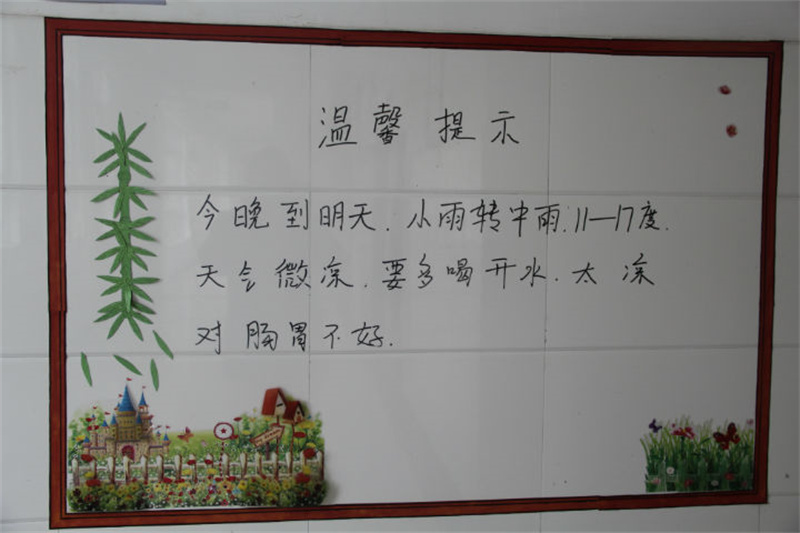 温馨提示
今晚到明天.小雨转中雨.11—17度.
天气微凉.要多喝开水.太凉
对肠胃不好.